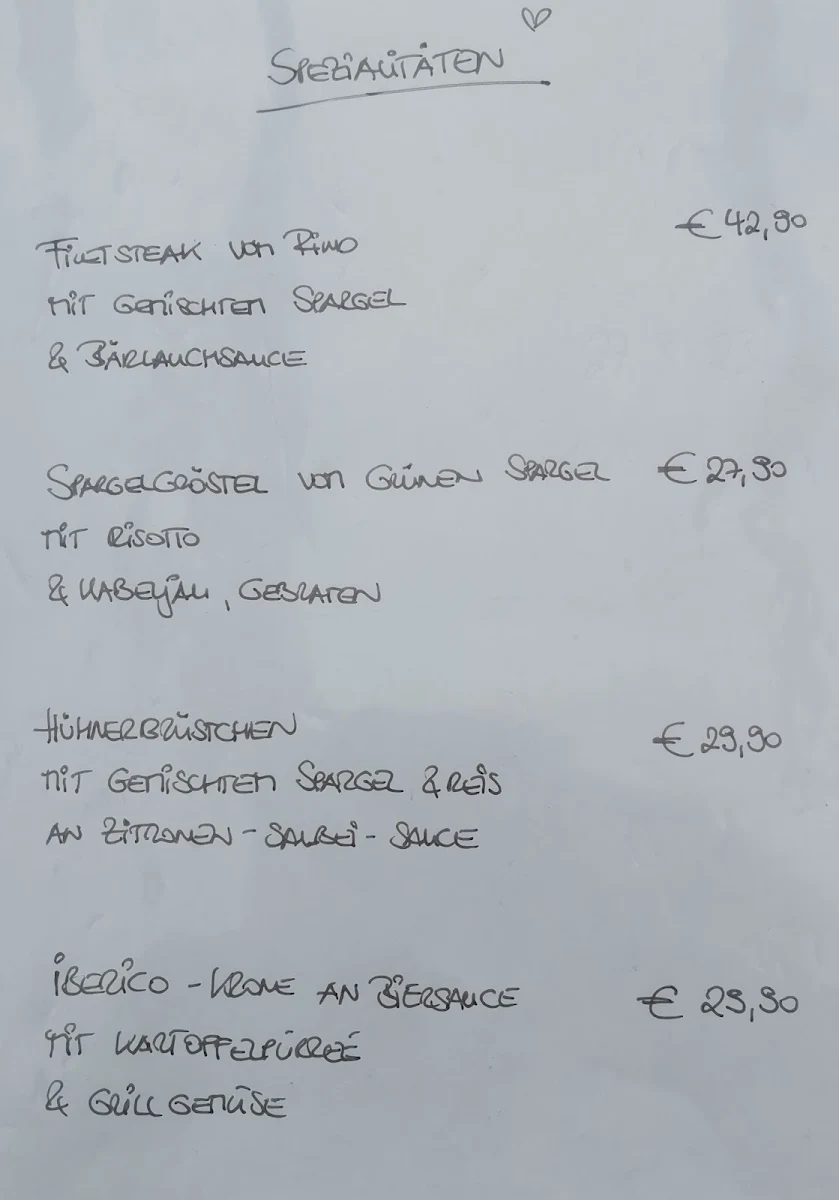 SPEZiALiTÄTEN
FiLETSTEAK von RiND € 42,90
MiT GEMiSCHTEN SPARGEL
& BÄRLAUCHSAUCE
SPARGELGRÖSTEL von GRÜNEN SPARGEL € 27,90
MiT RiSOTTO
& KABELJAU, GEBRATEN
HÜHNERBRÜSTCHEN € 29,90
MiT GEMiSCHTEN SPARGEL & REiS
AN ZiTRONEN - SALBEi - SAUCE
iBERiCO - KRONE AN BiERSAUCE € 29,90
MiT KARTOFFELPÜRREÉ
& GRiLL GEMÜSE